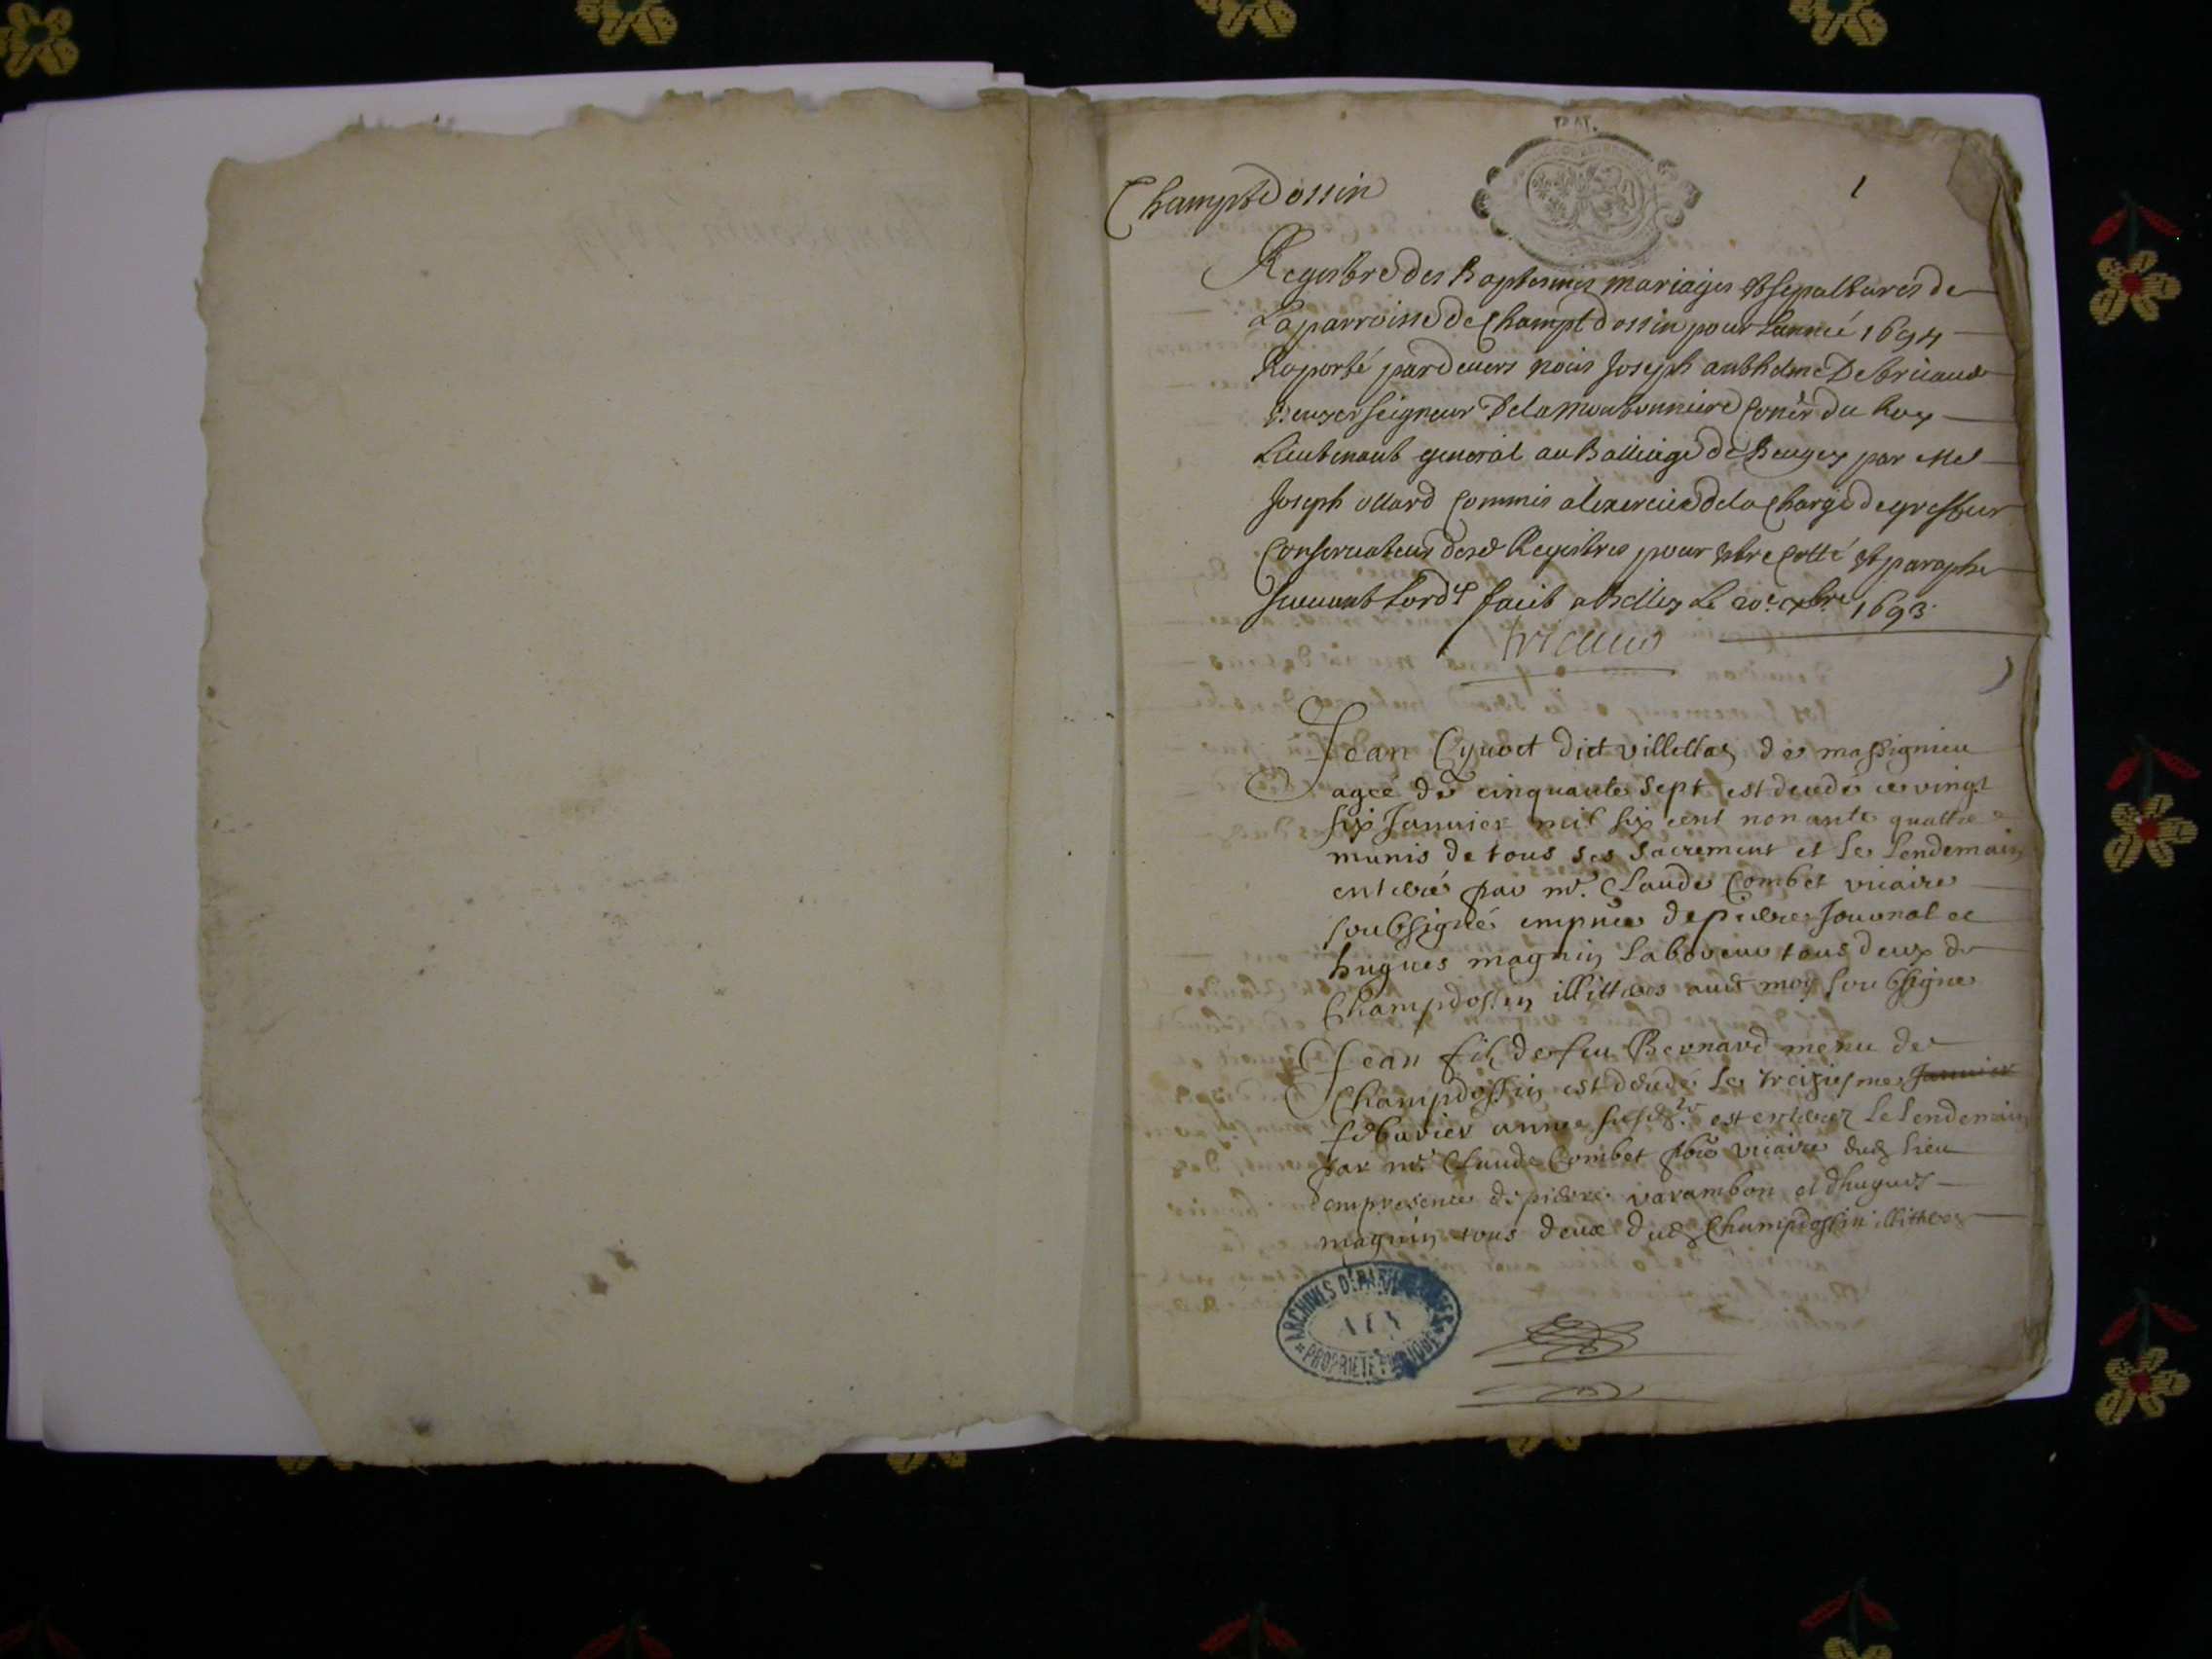 Champt Dossin
1
Registre des Baptesmes mariages et sepultures de
La parroisse de Champt dossin pour Lanneé 1694
Raporté pardevers nous Joseph anthelme De
seigneur Dela Monbonniere Conër du Roy
Lieutenant general au Balliage de Beugey par Me
Joseph ollard Commis a lexercice de la Charge de greffier
Conservateur desd Registres pour estre Cotté et paraphe
suivant Lord faict a Belley Le 20e xbre 1693
Jean Cyvoct dict villettaz de massignieu
ageé de cinquante sept est decedé ce vingt
six Januier mil six cent nonante quattre
munis de tous ses sacrement et le lendemain
enterré par mr. Claude Combet vicaire
soubsigné de pierre Journal et
hugues magnin laboureur tous deux de
Champdossin illitteres aud moy soubsigné
Jean filz de feu Bernard menu de
Champdossin est decedé le treiziesme Januier
feburier annee susd. est enterrez le lendemain
par mr. Claude Combet pbre vicaire dud lieu
en presence de pierre varambon et dhugues
magnin tous deux dud Champdossin illitteres
ARCHIVES DÉPARTEMENTALES
AIN
PROPRIETE PUBLIQUE